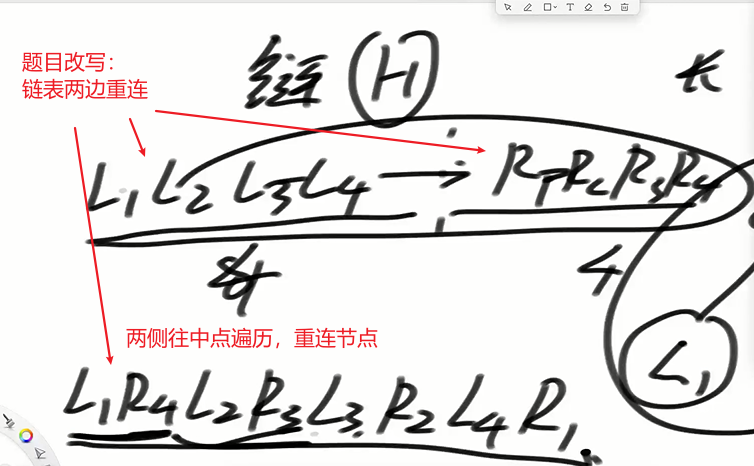 题目改写：
链表两边重连
链 H 长
L1 L2 L3 L4 → R1 R2 R3 R4
4
L1
两侧往中点遍历，重连节点
L1R4L2R3L3R2L4R1